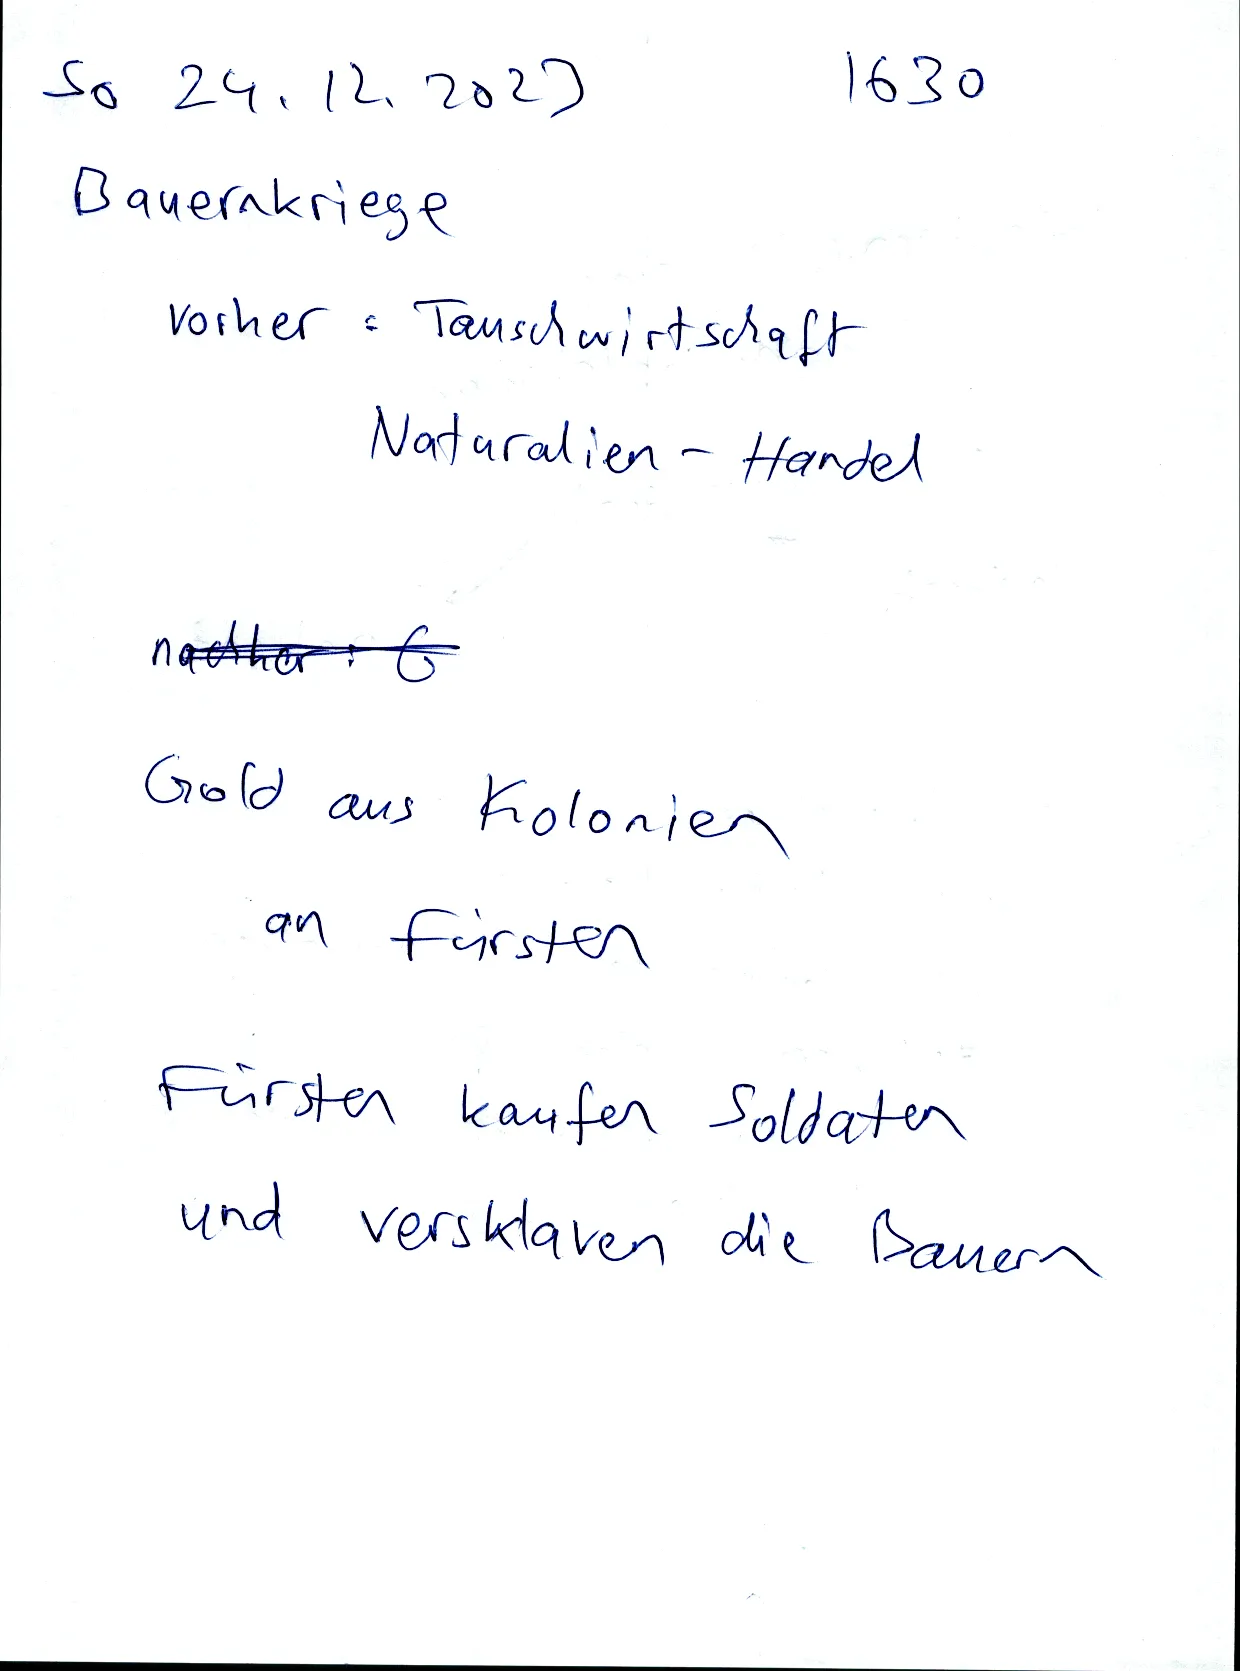 So 24.12.2023 1630
Bauernkriege
vorher : Tauschwirtschaft
Naturalien - Handel
nachher : G
Gold aus Kolonien
an Fürsten
Fürsten kaufen Soldaten
und versklaven die Bauern